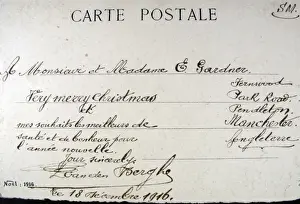 CARTE POSTALE
Monsieur et Madame E Gardner
Fernwood
Park Road
Pendleton
Manchester
Angleterre
Very merry Christmas
et
mes souhaits les meilleurs de
santé et de bonheur pour
l'année nouvelle.
Your sincerely
Vanden Berghe
Noël: 1916
le 18 décembre 1916.